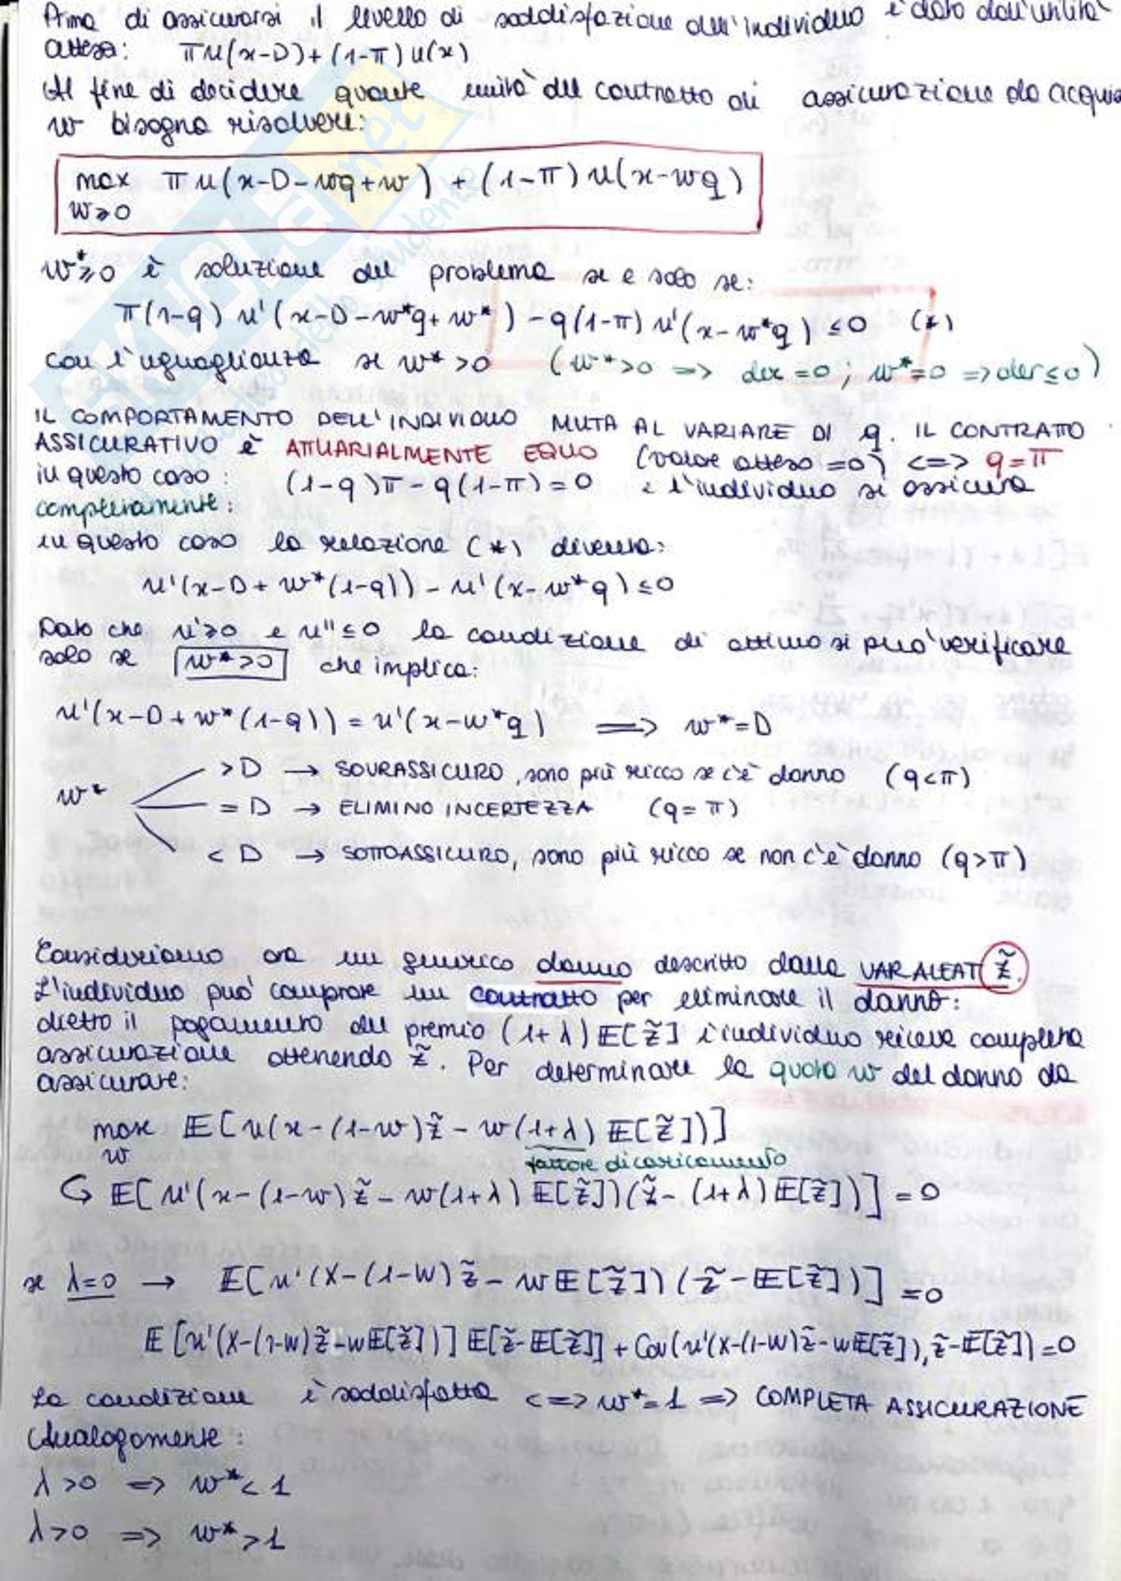 Prima di assicurarsi il livello di soddisfazione dell'individuo è dato dall'utilità
attesa: πu(x-D)+(1-π)u(x)
Al fine di decidere quante unità del contratto di assicurazione da acquis
w bisogna risolvere:
max πu(x-D-wq+w) + (1-π)u(x-wq)
w≥0
w*≥0 è soluzione del problema se e solo se:
π(1-q) u'(x-D-w*q+w*) - q(1-π) u'(x-w*q) ≤0 (*)
con l'uguaglianza se w*>0 (w*>0 => der=0; w*=0 => der≤0)
IL COMPORTAMENTO DELL'INDIVIDUO MUTA AL VARIARE DI q. IL CONTRATTO
ASSICURATIVO è ATTUARIALMENTE EQUO (valore atteso =0) <=> q=π
in questo caso: (1-q)π-q(1-π)=0 e l'individuo si assicura
completamente:
in questo caso la relazione (*) diventa:
u'(x-D+w*(1-q)) - u'(x-w*q) ≤0
Dato che u'≥0 e u''≤0 la condizione di ottimo si può verificare
solo se w*>0 che implica:
u'(x-D+w*(1-q)) = u'(x-w*q) => w*=D
>D → SOVRASSICURO, sono più ricco se c'è danno (q<π)
w* = D → ELIMINO INCERTEZZA (q=π)
<D → SOTTOASSICURO, sono più ricco se non c'è danno (q>π)
Consideriamo ora un generico danno descritto dalla VAR.ALEAT z̃.
L'individuo può comprare un contratto per eliminare il danno:
dietro il pagamento del premio (1+λ)E[z̃] l'individuo riceve completa
assicurazione ottenendo z̃. Per determinare la quota w del danno da
assicurare:
max E[u(x-(1-w)z̃-w(1+λ)E[z̃])]
w
fattore di caricamento
↳ E[u'(x-(1-w)z̃-w(1+λ)E[z̃])(z̃-(1+λ)E[z̃])]=0
se λ=0 → E[u'(X-(1-W)z̃-wE[z̃])(z̃-E[z̃])]=0
E[u'(X-(1-w)z̃-wE[z̃])]E[z̃-E[z̃]]+Cov(u'(X-(1-w)z̃-wE[z̃]),z̃-E[z̃])=0
La condizione è soddisfatta <=> w*=1 => COMPLETA ASSICURAZIONE
Analogamente:
λ>0 => w*<1
λ>0 => w*>1